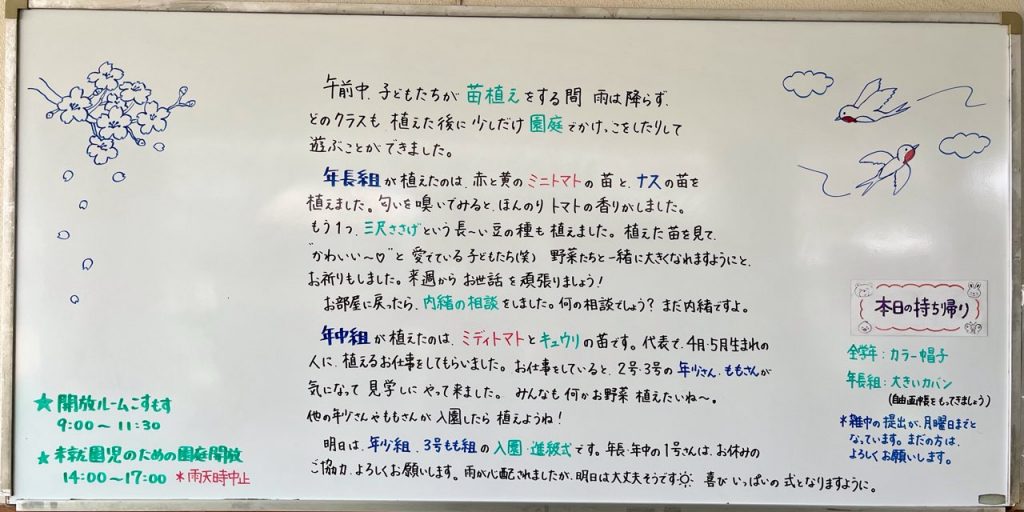 午前中、子どもたちが 苗植え をする間 雨は降らず、
どのクラスも 植えた後に 少しだけ 園庭でかけっこをしたりして
遊ぶことができました。
年長組が植えたのは、赤と黄の ミニトマトの 苗と、ナスの苗を
植えました。匂いを嗅いでみると、ほんのり トマトの 香りがしました。
もう1つ、三尺ささげという 長〜い 豆の 種も 植えました。植えた 苗を見て、
"かわいい〜♡"と 愛でている 子どもたち(笑) 野菜たちと 一緒に 大きくなれますようにと、
お祈りもしました。来週から お世話 を 頑張りましょう!
お部屋に戻ったら、内緒の相談をしました。何の相談でしょう? まだ内緒ですよ。
年中組が植えたのは、ミディトマトとキュウリの苗です。代表で、4月・5月生まれの
人に、植えるお仕事をしてもらいました。お仕事をしていると、2号・3号の 年少さん・ももさんが
気になって 見学しに やって来ました。 みんなも 何かお野菜 植えたいね〜。
他の年少さんやももさんが 入園したら 植えようね!
明日は、年少組、3号もも組の 入園・進級式です。年長・年中の1号さんは、お休みの
ご協力、よろしくお願いします。雨が心配されましたが、明日は大丈夫そうです☀ 喜び いっぱいの 式となりますように。
★開放ルームこすもす
9:00〜11:30
★未就園児のための園庭開放
14:00〜17:00 *雨天時中止
本日の持ち帰り
全学年:カラー帽子
年長組:大きいカバン
(自由画帳をもってきましょう)
*雑巾の提出が、月曜日までと
なっています。まだの方は、
よろしくお願いします。